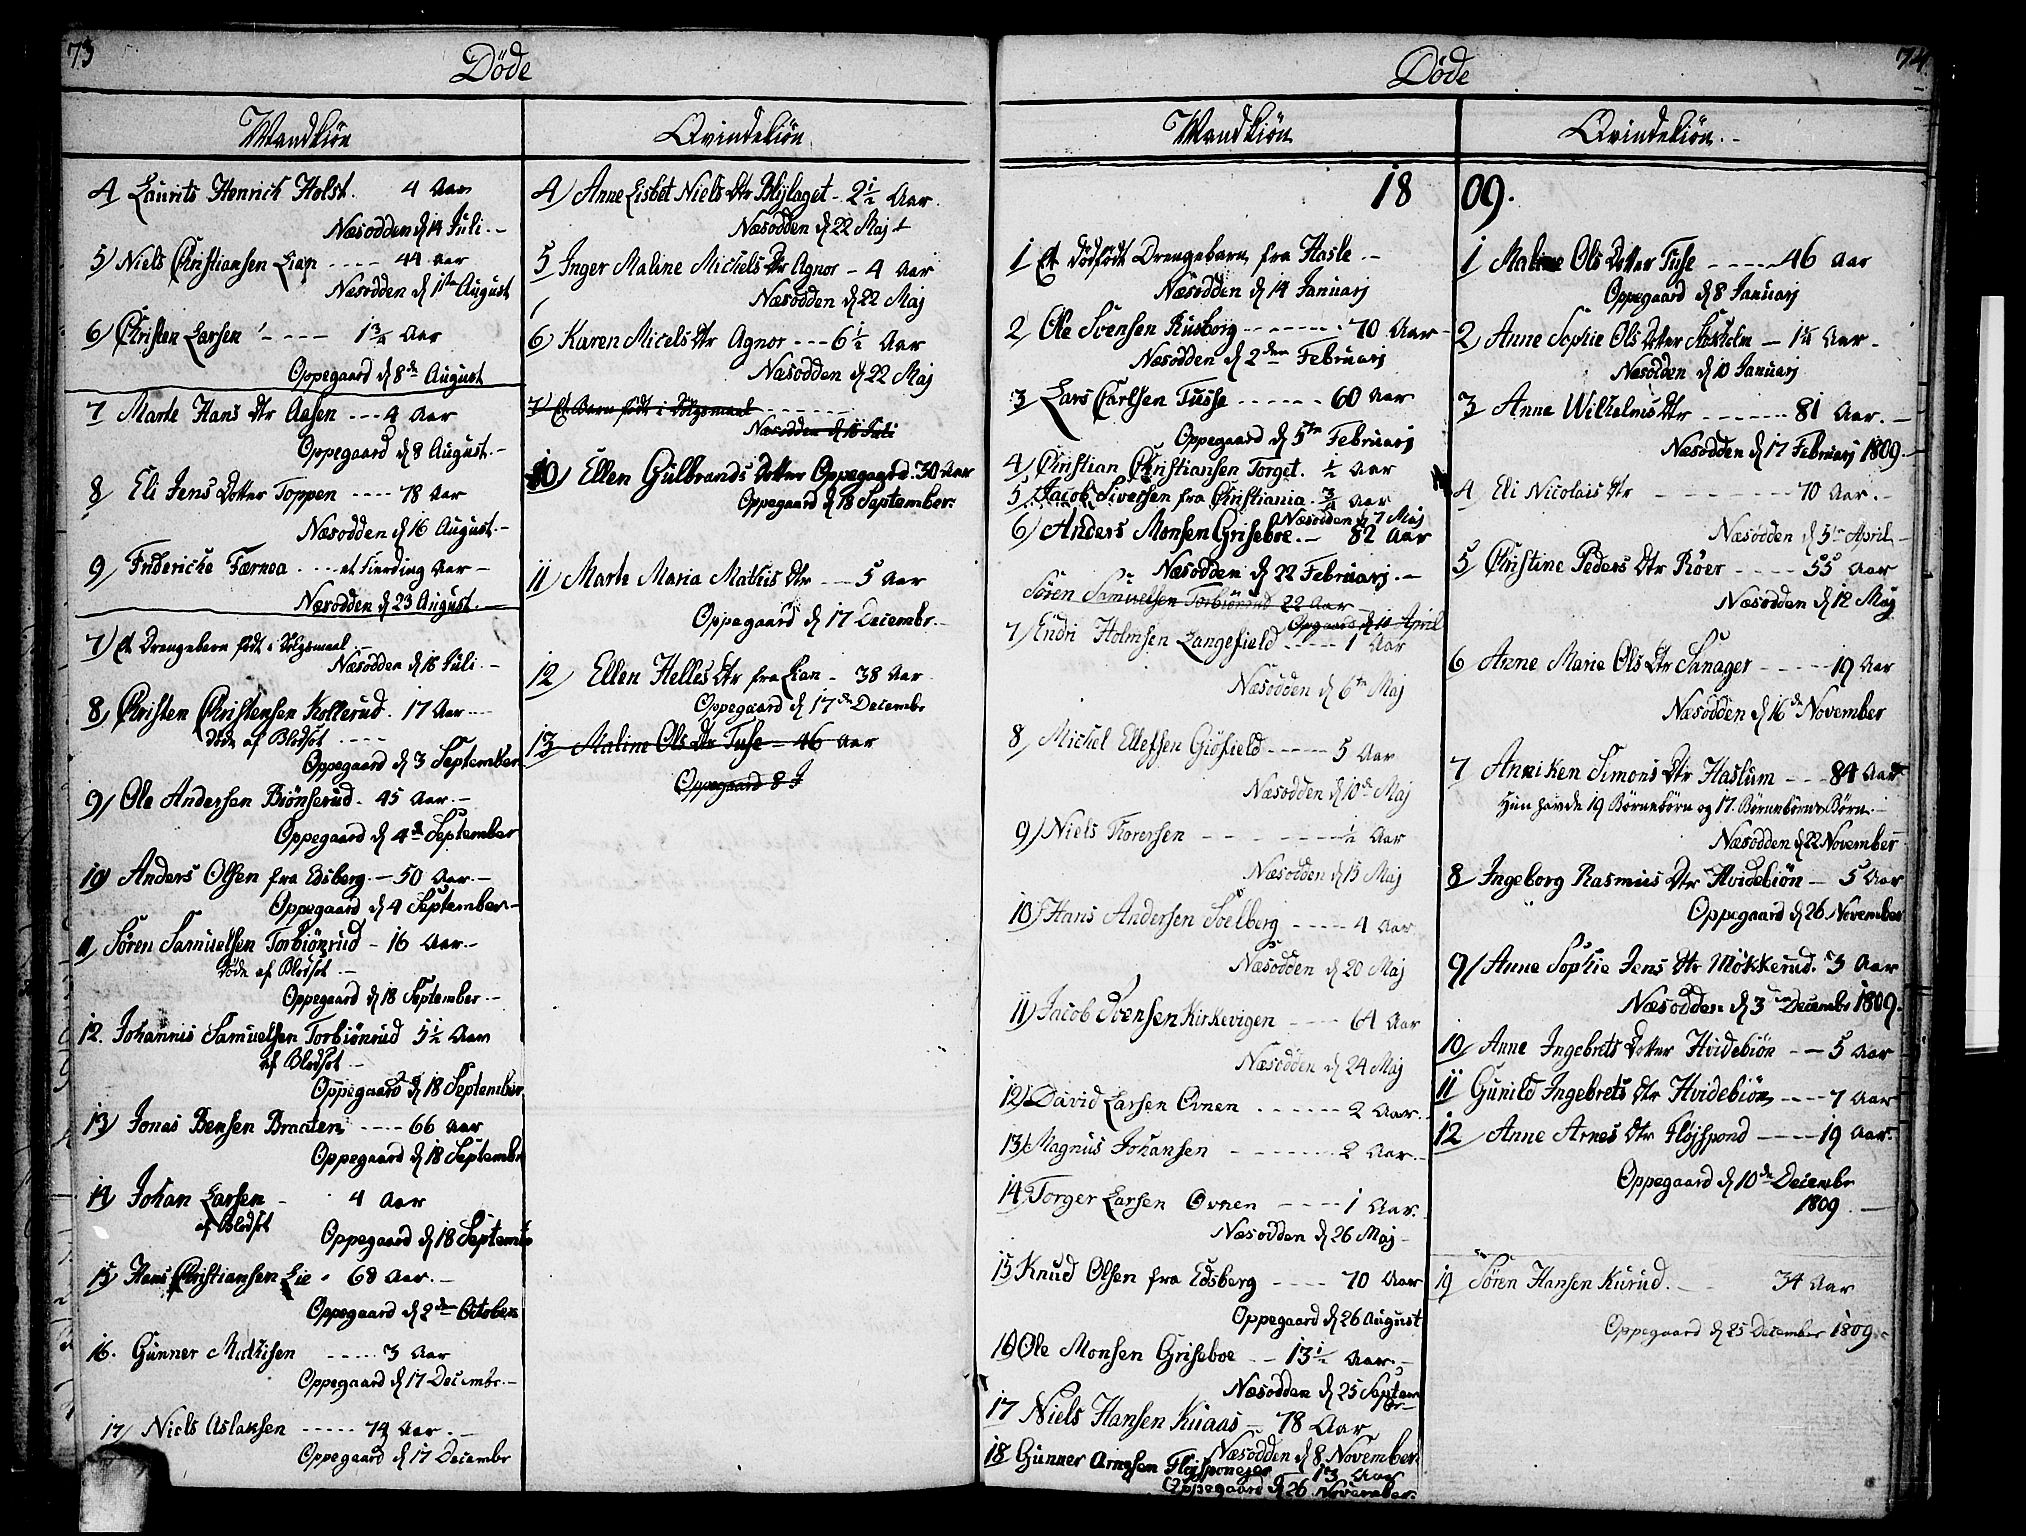 73
Døde
Mandkiøn
4 Laurits Henrich Holst. 4 Aar
Næsodden d 14 Juli. -
5) Niels Christiansen Lian ---- 44 aar
Næsodden d 1ste August
6) Christen Larsen ---- 1 3/4 Aar
Oppegaard d 8de August
7 Marte Hans Dtr Aasen --- 4 Aar
Oppegaard d 8 August. -
8 Eli Jens Dotter Toppen ---- 78 Aar
Næsodden d 16 August. -
9 Frideriche Færnea .... et Fierding Aar -
Næsodden d 23 August. -
7) Et Drengebarn født i Dølgsmaal
Næsodden d 18 Juli. -
8) Christen Christensen Kollerud. 17 Aar ---
døde af Blodsot ----
Oppegaard d 3 September
9) Ole Andersen Brønserud. 45 Aar. -
Oppegaard d 4de September
10) Anders Olsen fra Edsberg. - 50 Aar. -
Oppegaard d 4 September -
11 Søren Samuelsen Torbiørnrud - 16 Aar. -
døde af Blodsot -
Oppegaard d 18 September. -
12. Johannis Samuelsen Torbiørnrud 5 1/2 Aar
af Blodsot -
Oppegaard d 18 September
13) Jonas Bensen Braaten ---- 66 Aar
Oppegaard d 18 Septembr
14) Johan Larsen - 4 Aar
af Blodsot
Oppegaard d 18 Septemb
15) Hans Christiansen Lie - 68 Aar. -
Oppegaard d 2den October
16. Gunner Mathisen ---- 3 Aar
Oppegaard d 17 Decembr. -
17) Niels Aslaksen ----- 74 Aar. -
Oppegaard d 17 Decembr
Qvindekiøn
4) Anne Lisbet Niels Dtr Blylaget - 2 1/2 Aar.
Næsodden d 22 Maj
5 Inger Maline Michels Dtr Agnor - 4 Aar
Næsodden d 22 Maj
6) Karen Micels Dtr Agnor --- 6 1/2 Aar
Næsodden d 22 Maj
7) Et Barn født i Dølgsmaal ------
Næsodden d 18 Juli
10) Ellen Gulbrands Dotter Oppegaard 30 Aar
Oppegaard d 18 September.
11 Marte Maria Mathis Dtr --- 5 Aar
Oppegaard d 17 Decembr. -
12 Ellen Helles Dtr fra Lian - 38 Aar
Oppegaard d 17de Decembr
13 Maline Ols Dtr Tuse - 46 Aar
Oppegaard 8 J
74
Døde
Mandkiøn
18
1 Et dødfødt Drengebarn fra Hasle. -
Næsodden d 14 Januarj
2 Ole Svensen Rusborg -------- 70 Aar -
Næsodden d 2den Februarj
3 Lars Carlsen Tusse ------ 60 Aar
Oppegaard d 5te Februarj
4) Christian Christiansen Torget. 1/2 Aar
5) Jacob Siversen fra Christiania. 3/4 Aar
Næsodden d 7 Maj
6) Anders Monsen Griseboe. - 82 Aar
Næsodden d 22 Februarj. -
Søren Samuelsen Torbiørnrud 22 Aar
Opegaard d 10 April
7) Endri Holmsen Langefield ----- 1 Aar
Næsodden d 6te Maj
8) Michel Ellefsen Giøfield ----- 5 Aar
Næsodden d 10de Maj
9) Niels Thoresen - - - - - - 1/2 Aar
Næsodden d 15 Maj
10) Hans Andersen Soelberg ----- 4 Aar
Næsodden d 20 Maj
11) Jacob Svensen Kirkevigen ---- 64 Aar
Næsodden d 24 Maj
12) David Larsen Ovnen ------ 2 Aar. -
13) Magnus Johansen ------- 2 Aar. -
14) Torger Larsen Ovnen ---- 1 Aar. -
Næsodden d 26 Maj -
15 Knud Olsen fra Edsberg ---- 70 Aar
Oppegaard d 26 August
16) Ole Monsen Griseboe -- 13 1/2 Aar. -
Næsodden d 25 Septem
br -
17 Niels Hansen Knaas - 78 Aar
Næsodden d 8 November.
18 Gunner Arnesen Fløjsponeger 13 Aar
Oppegaard d 26 November.
Qvindekiøn. -
09.
1 Maline Ols Dotter Tuse ----- 46 Aar
Oppegaard d 8 Januarj
2 Anne Sophie Ols Dotter Stokholm - 1 1/4 Aar -
Næsodden d 10 Januarj
3 Anne Wilhelms Dtr ------- 81 Aar. -
Næsodden d 17 Februarj 1809. -
4 Eli Nicolais Dtr - - - - - - 70 Aar. -
Næsodden d 5te April -
5 Christine Peders Dtr Röer ----- 55 Aar
Næsodden d 12 Maj
6 Anne Marie Ols Dtr Sanager ----- 19 Aar
Næsodden d 16de November
7 Anniken Simons Dtr Haslum --- 84 Aar
Hun havde 19 Børnebørn og 17 Børnebørns Børn. -
Næsodden d 22 November
8 Ingeborg Rasmus Dtr Hvidebiøn - 5 Aar
Oppegaard d 26 November
9) Anne Sophie Jens Dtr Møkkerud. 3 Aar
Næsodden d 3 Decembr 1809.
10) Anne Ingebrets Dotter Hvidebiøn -- 5 Aar
11 Gunild Ingebrets Dtr Hvidebiøn ---- 7 Aar
12 Anne Arnes Dtr Fløjspond ---- 19 Aar.
Oppegaard d 10de Decembr
1809. -
19 Søren Hansen Kurud. - 34 Aar
Oppegaard d 25 December 1809.